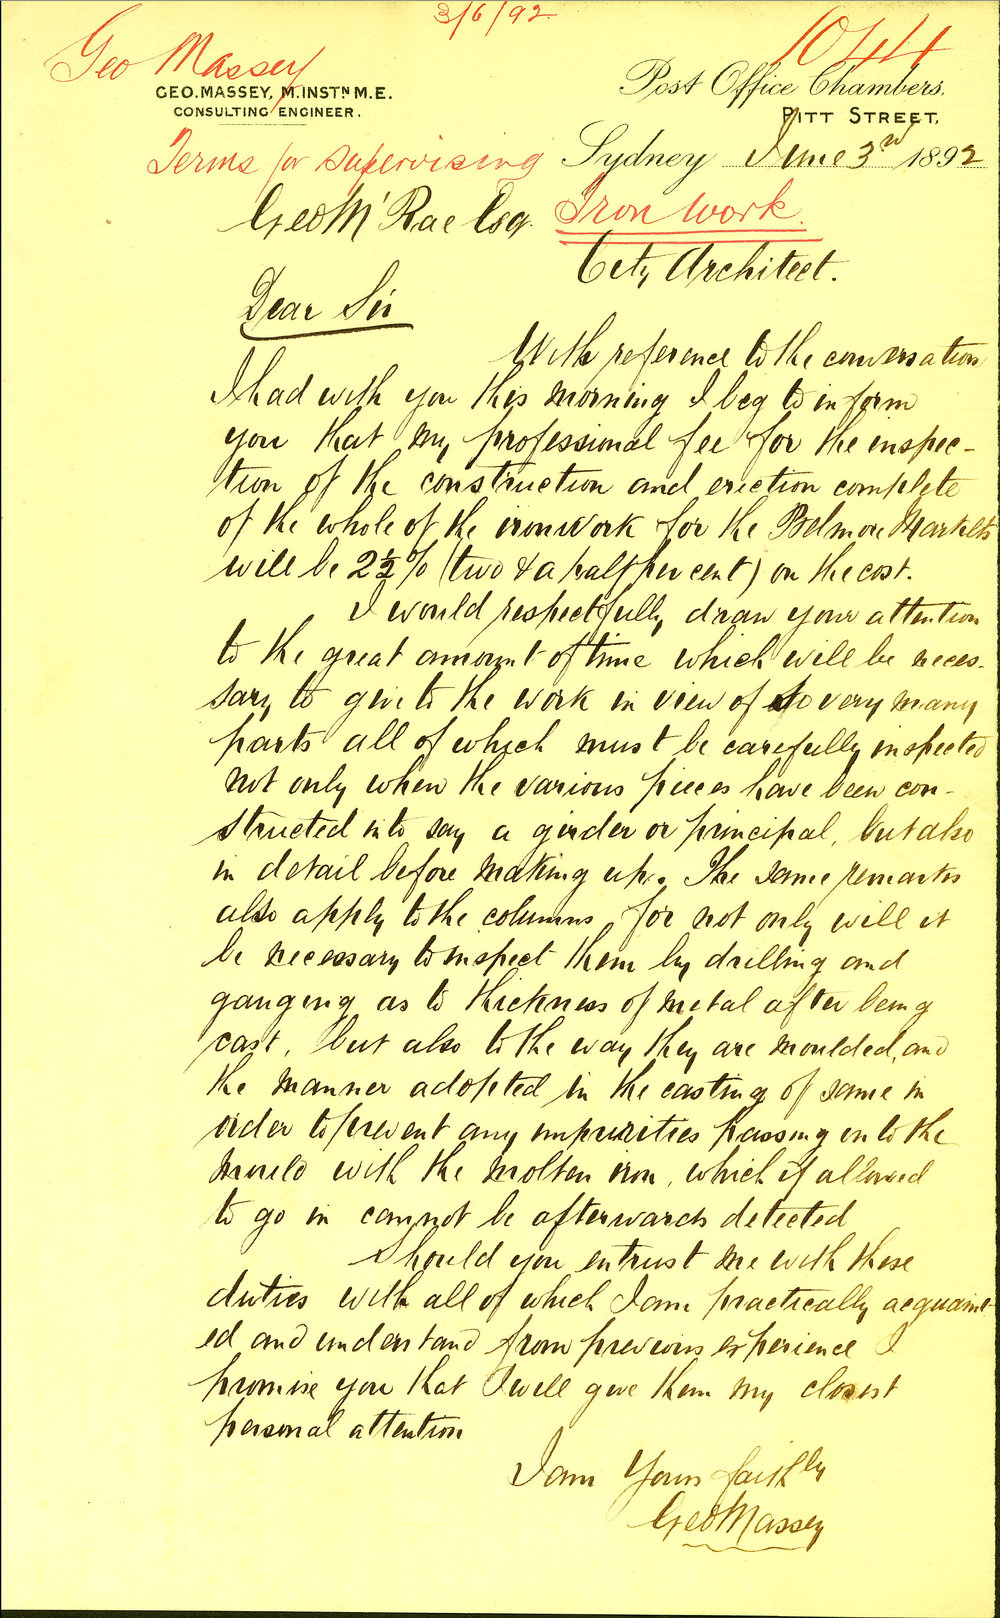 3/6/92
Geo Massey
1044
GEO. MASSEY, M.INSTN M.E.
CONSULTING ENGINEER.
Post Office Chambers,
PITT STREET,
Terms for supervising
Sydney June 3rd 1892
Iron work.
Geo Mc Rae Esq.
City Architect.
Dear Sir
With reference to the conversation
I had with you this morning I beg to inform
you that my professional fee for the inspec-
tion of the construction and erection complete
of the whole of the ironwork for the Belmore Markets
will be 2½% (two & a half per cent) on the cost.
I would respectfully draw your attention
to the great amount of time which will be neces-
sary to give to the work in view of so very many
parts all of which must be carefully inspected
not only when the various pieces have been con-
structed into say a girder or principal, but also
in detail before making up. The same remarks
also apply to the columns, for not only will it
be necessary to inspect them by drilling and
gauging as to thickness of metal after being
cast, but also to the way they are moulded, and
the manner adopted in the casting of same in
order to prevent any impurities passing into the
mould with the molten iron, which if allowed
to go in cannot be afterwards detected
Should you entrust me with these
duties with all of which I am practically acquaint-
ed and understand from previous experience I
promise you that I will give them my closest
personal attention
I am Yours faithly
Geo Massey